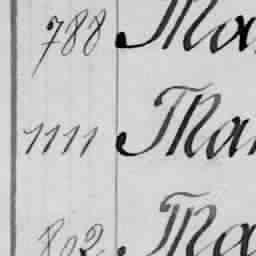 788 Ma
1111 Ma
802 Ma